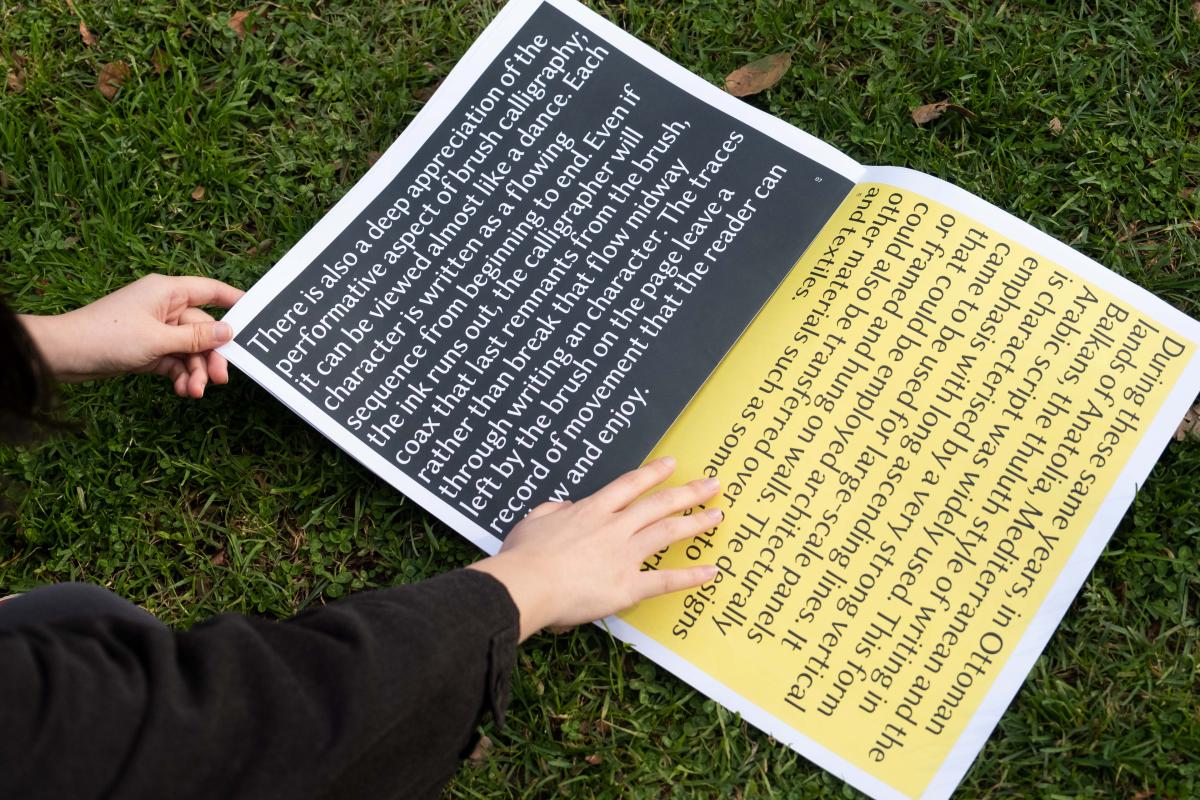 There is also a deep appreciation of the
performative aspect of brush calligraphy;
it can be viewed almost like a dance. Each
character is written as a flowing
sequence from beginning to end. Even if
the ink runs out, the calligrapher will
coax that last remnants from the brush,
rather than break that flow midway
through writing an character. The traces
left by the brush on the page leave a
record of movement that the reader can
and enjoy.
During these same years, in Ottoman
lands of Anatolia, Mediterranean and the
Balkans, the thuluth style of writing in
Arabic script was widely used. This form
is characterised by a very strong vertical
emphasis with long ascending lines. It
came to be used for large-scale panels
that could be employed architecturally
or framed and hung on walls. The designs
could also be transferred over onto
other materials such as some
and textiles.